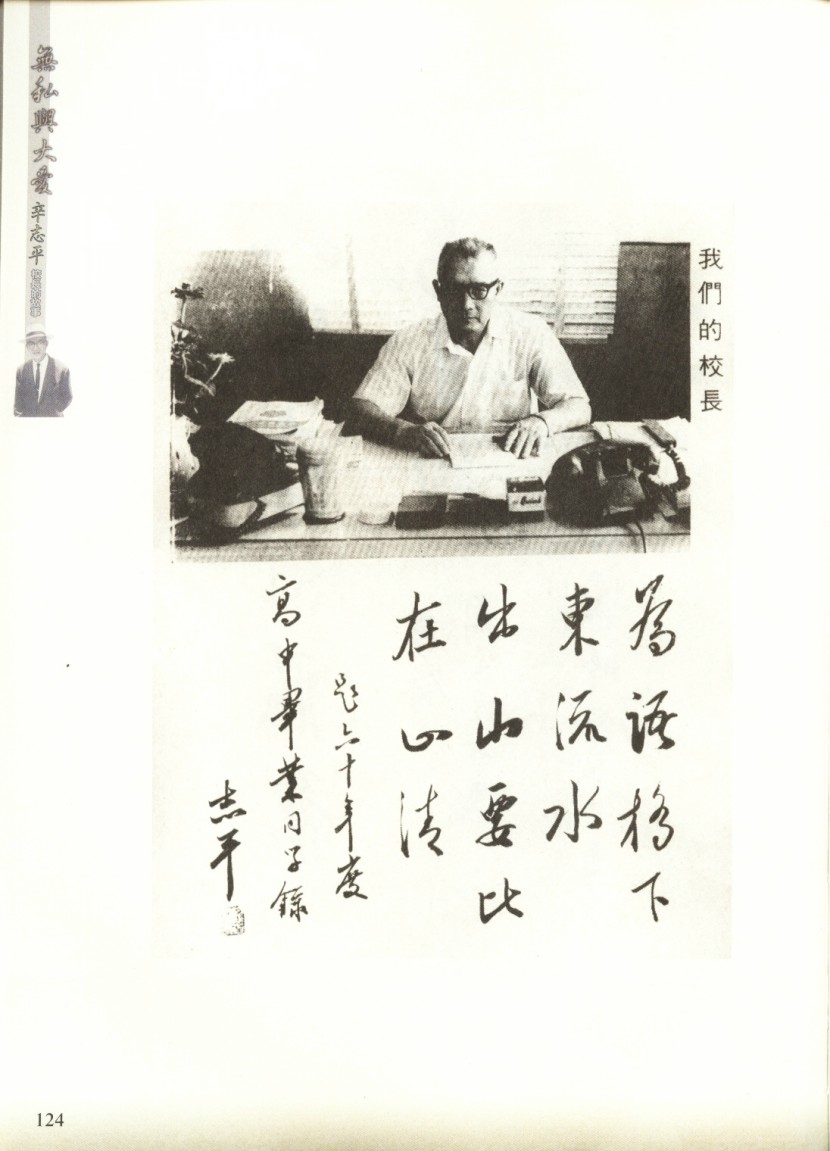 無私與大愛
辛志平
校長的故事
我們的校長
為語橋下
東流水
出山要比
在山清
題六十年度
高中畢業同學錄
志平
124